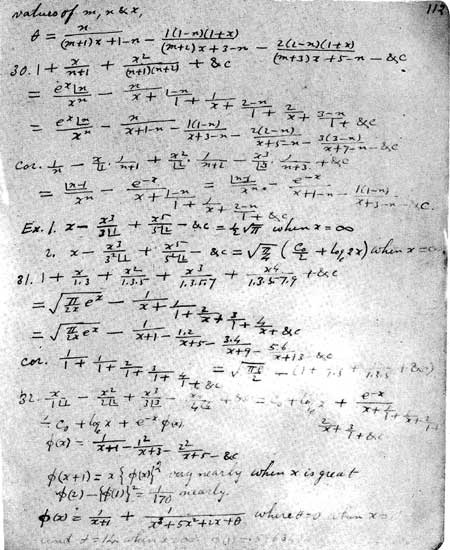 values of m, n & x,
112
θ = n/((m+1)x+1-n) - 1(1-n)(1+x)/((m+2)x+3-n) - 2(2-n)(1+x)/((m+3)x+5-n) - &c
30. 1 + x/(n+1) + x²/((n+1)(n+2)) + &c
= e^x|n/x^n - n/x + (1-n)/1 + 1/x + (2-n)/1 + 2/x + (3-n)/1 + &c
= e^x|n/x^n - n/(x+1-n) - 1(1-n)/(x+3-n) - 2(2-n)/(x+5-n) - 3(3-n)/(x+7-n) - &c
Cor. 1/n - x/|1 · 1/(n+1) + x²/|2 · 1/(n+2) - x³/|3 · 1/(n+3) + &c
= |n-1/x^n - e^-x/x + (1-n)/1 + 1/x + (2-n)/1 + &c = |n-1/x^n - e^-x/(x+1-n) - 1(1-n)/(x+3-n) - &c.
Ex. 1. x - x³/3|1 + x⁵/5|2 - &c = ½√π when x = ∞
2. x - x³/3²|1 + x⁵/5²|2 - &c = √π/4 (C₀/2 + log 2x) when x = ∞
31. 1 + x/1.3 + x²/1.3.5 + x³/1.3.5.7 + x⁴/1.3.5.7.9 + &c
= √(π/2x e^x) - 1/x + 1/1 + 2/x + 3/1 + 4/x + &c
= √(π/2x e^x) - 1/(x+1) - 1.2/(x+5) - 3.4/(x+9) - 5.6/(x+13) - &c
Cor. 1/1 + 1/1 + 2/1 + 3/1 + 4/1 + &c = √(πe/2) - (1 + 1/1.3 + 1/1.3.5 + &c)
32. x/1|1 - x²/2|2 + x³/3|3 - x⁴/4|4 + &c = C₀ + log x + e^-x/x + 1/1 + 1/x + 2/1 + 2/x + 3/1 + &c
= C₀ + log x + e^-x φ(x)
φ(x) = 1/(x+1) - 1²/(x+3) - 2²/(x+5) - &c
φ(x+1) = x{φ(x)}² very nearly when x is great
φ(2) - {φ(1)}² = 1/170 nearly.
φ(x) = 1/(x+1) + 1/(x³+5x²+2x+θ) where θ=0 when x=